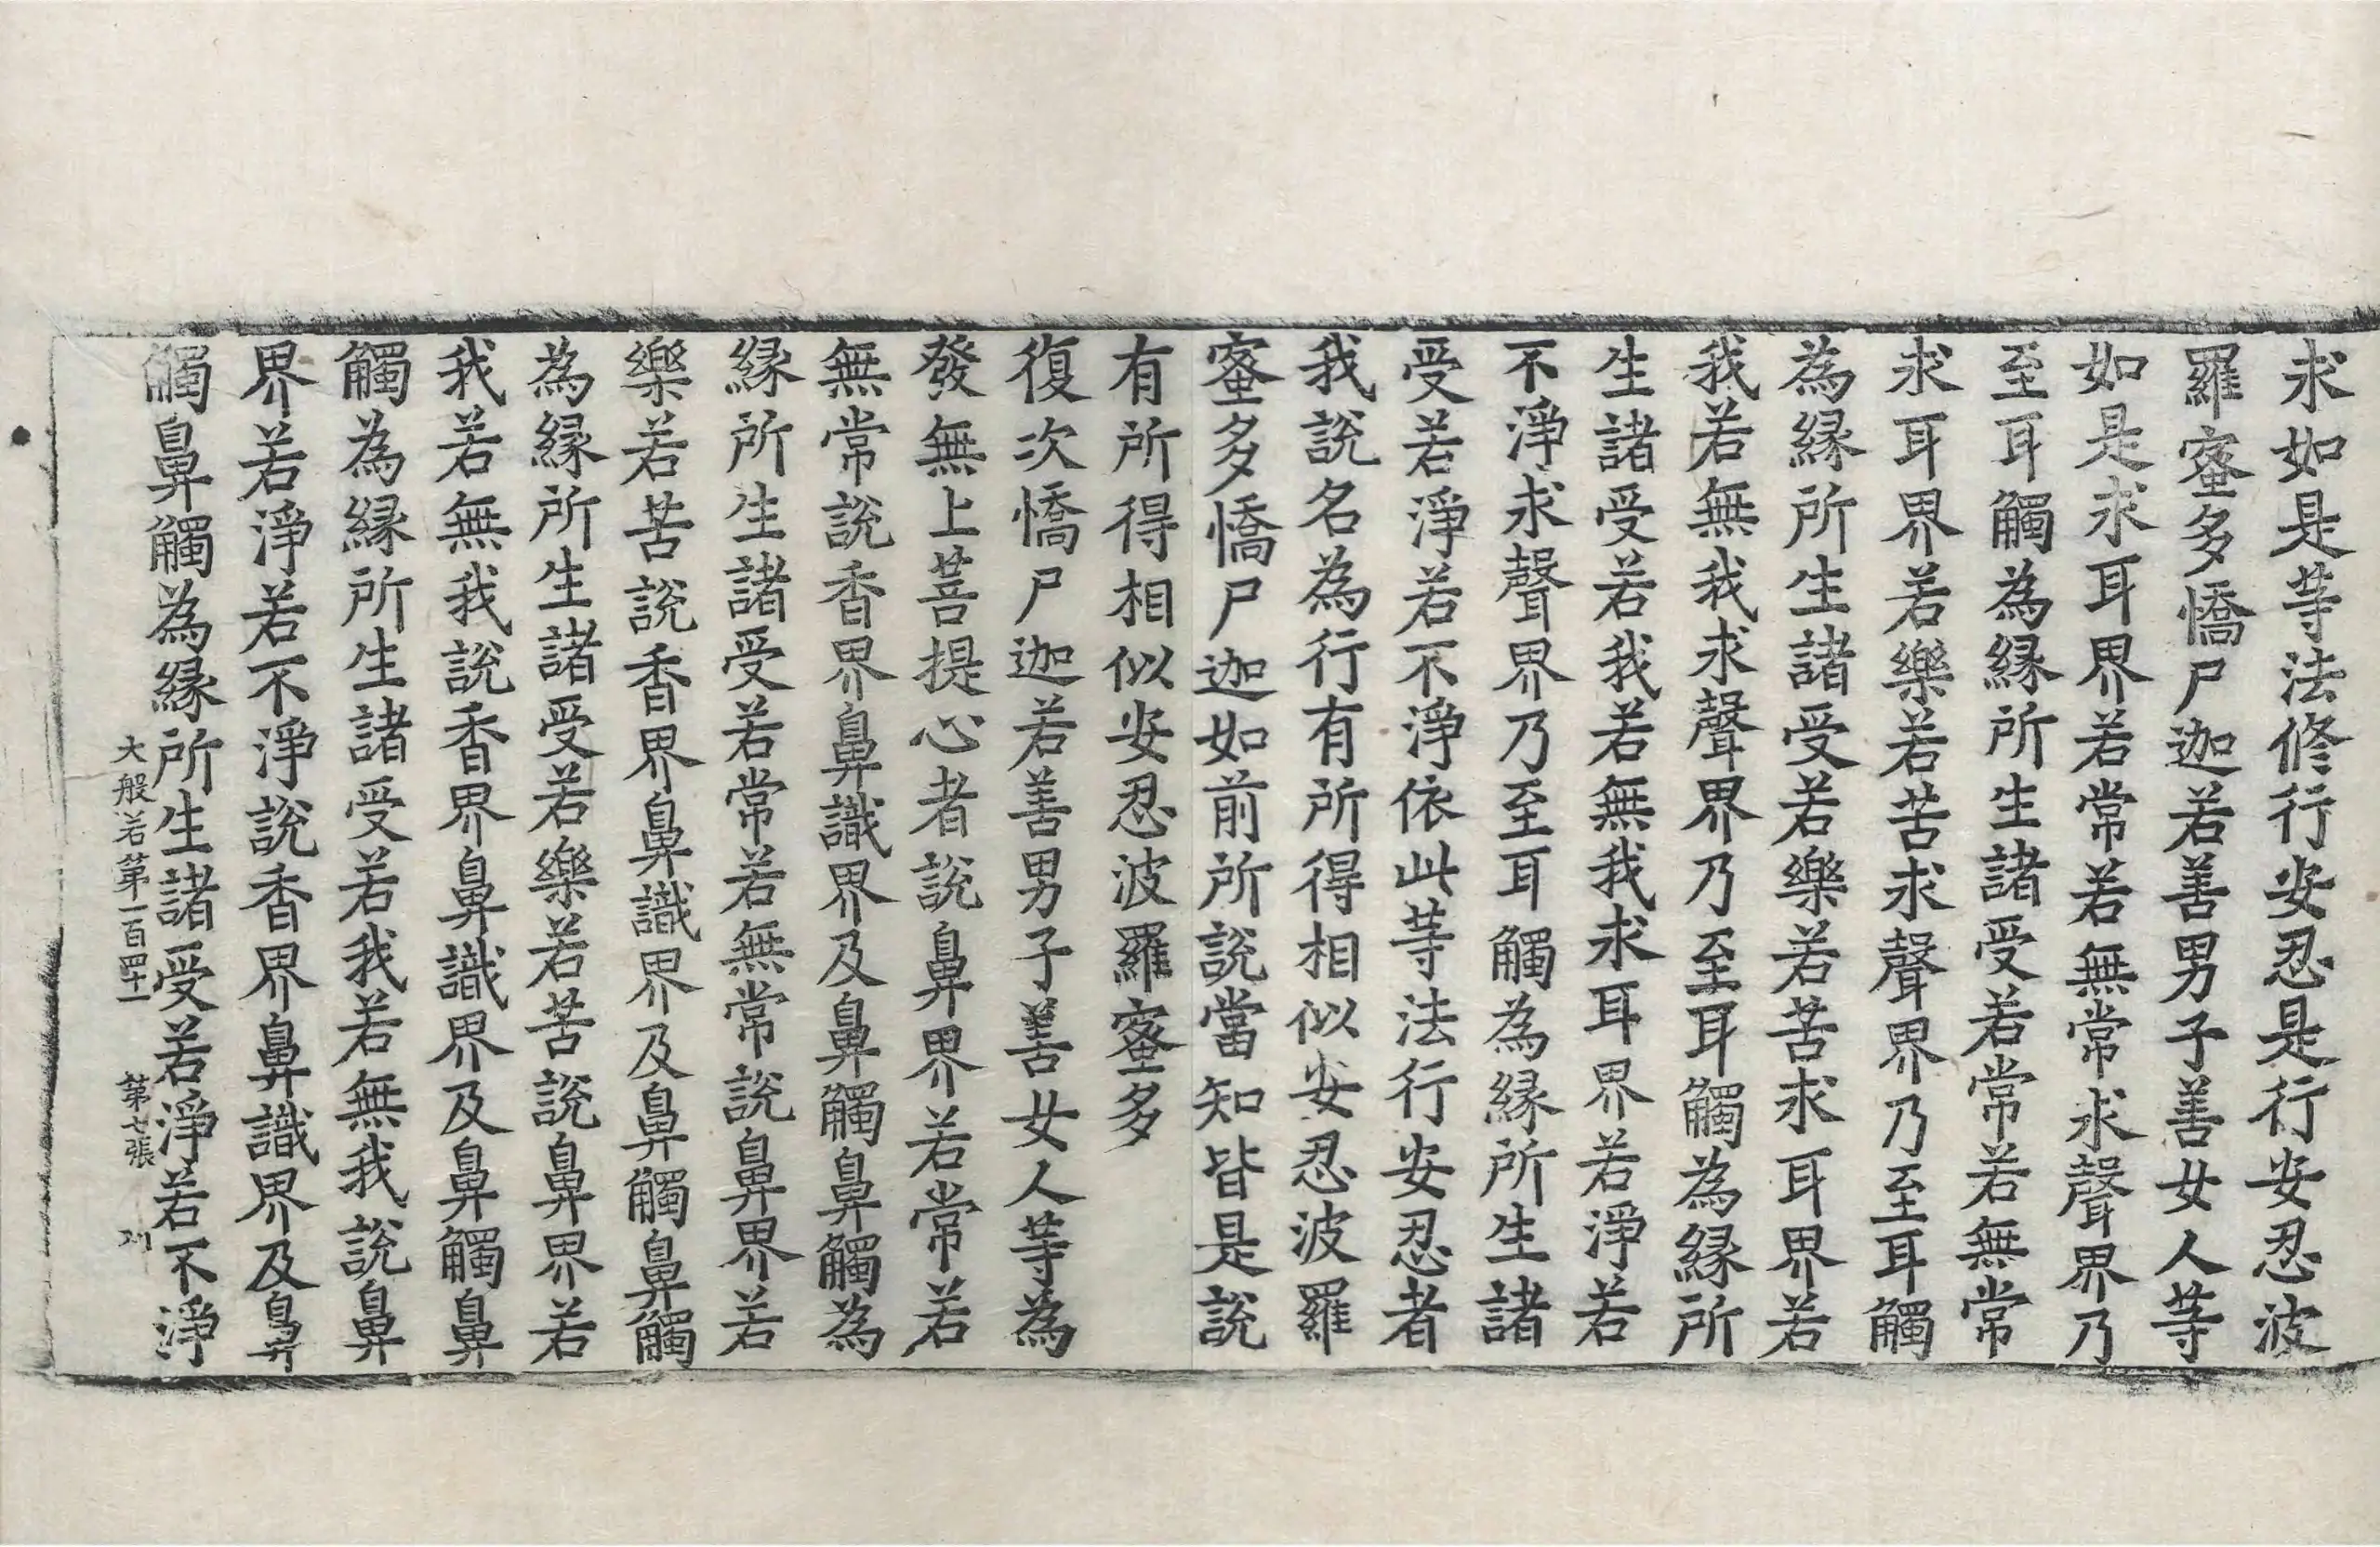 求如是等法修行安忍是行安忍波
羅蜜多憍尸迦若善男子善女人等
如是求耳界若常若無常求聲界乃
至耳觸為緣所生諸受若常若無常
求耳界若樂若苦求聲界乃至耳觸
為緣所生諸受若樂若苦求耳界若
我若無我求聲界乃至耳觸為緣所
生諸受若我若無我求耳界若淨若
不淨求聲界乃至耳觸為緣所生諸
受若淨若不淨依此等法行安忍者
我說名為行有所得相似安忍波羅
蜜多憍尸迦如前所說當知皆是說
有所得相似安忍波羅蜜多
復次憍尸迦若善男子善女人等為
發無上菩提心者說鼻界若常若
無常說香界鼻識界及鼻觸鼻觸為
緣所生諸受若常若無常說鼻界若
樂若苦說香界鼻識界及鼻觸鼻觸
為緣所生諸受若樂若苦說鼻界若
我若無我說香界鼻識界及鼻觸鼻
觸為緣所生諸受若我若無我說鼻
界若淨若不淨說香界鼻識界及鼻
觸鼻觸為緣所生諸受若淨若不淨
大般若第一百四十一 第七張